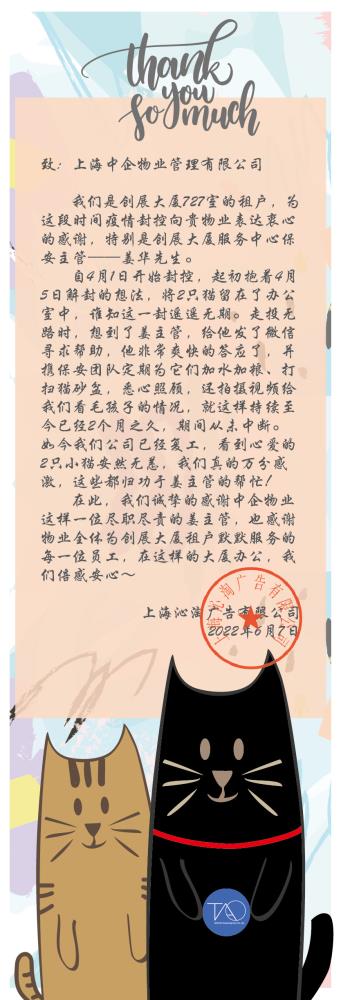 thank
you
so much
致：上海中企物业管理有限公司
我们是创展大厦727室的租户，为
这段时间疫情封控向贵物业表达衷心
的感谢，特别是创展大厦服务中心保
安主管——姜华先生。
自4月1日开始封控，起初抱着4月
5日解封的想法，将2只猫留在了办公
室中，谁知这一封遥遥无期。走投无
路时，想到了姜主管，给他发了微信
寻求帮助，他非常爽快的答应了，并
携保安团队定期为它们加水加粮、打
扫猫砂盆，悉心照顾，还拍摄视频给
我们看毛孩子的情况，就这样持续至
今已经2个月之久，期间从未中断。
如今我们公司已经复工，看到心爱的
2只小猫安然无恙，我们真的万分感
激，这些都归功于姜主管的帮忙！
在此，我们诚挚的感谢中企物业
这样一位尽职尽责的姜主管，也感谢
物业全体为创展大厦租户默默服务的
每一位员工，在这样的大厦办公，我
们倍感安心～
上海沁淘广告有限公司
2022年6月7日
上海沁淘广告有限公司
TAO